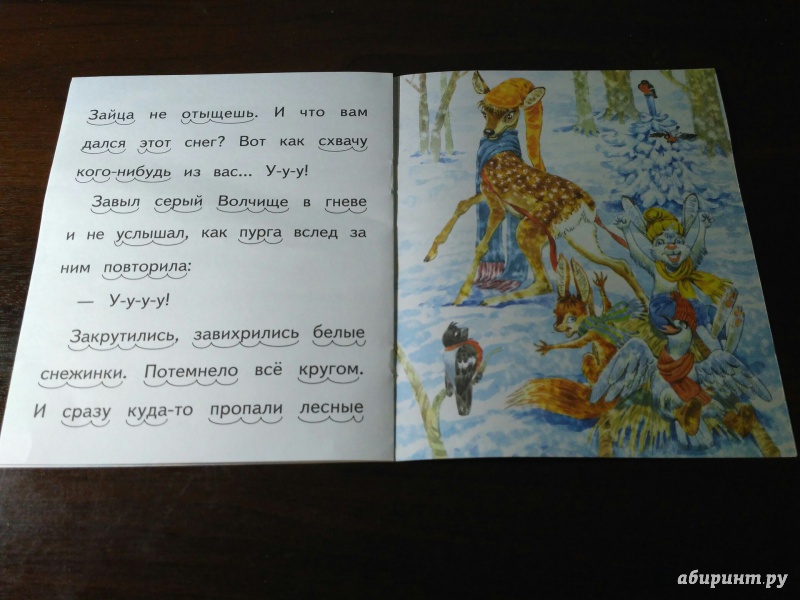 Зайца не отыщешь. И что вам
дался этот снег? Вот как схвачу
кого-нибудь из вас... У-у-у!
Завыл серый Волчище в гневе
и не услышал, как пурга вслед за
ним повторила:
— У-у-у-у!
Закрутились, завихрились белые
снежинки. Потемнело всё кругом.
И сразу куда-то пропали лесные
абиринт.ру